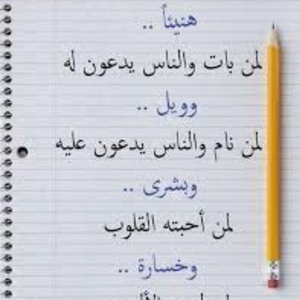 هنيئاً ..
لمن بات والناس يدعون له
وويل ..
لمن نام والناس يدعون عليه
وبشرى ..
لمن أحبته القلوب
وخسارة ..